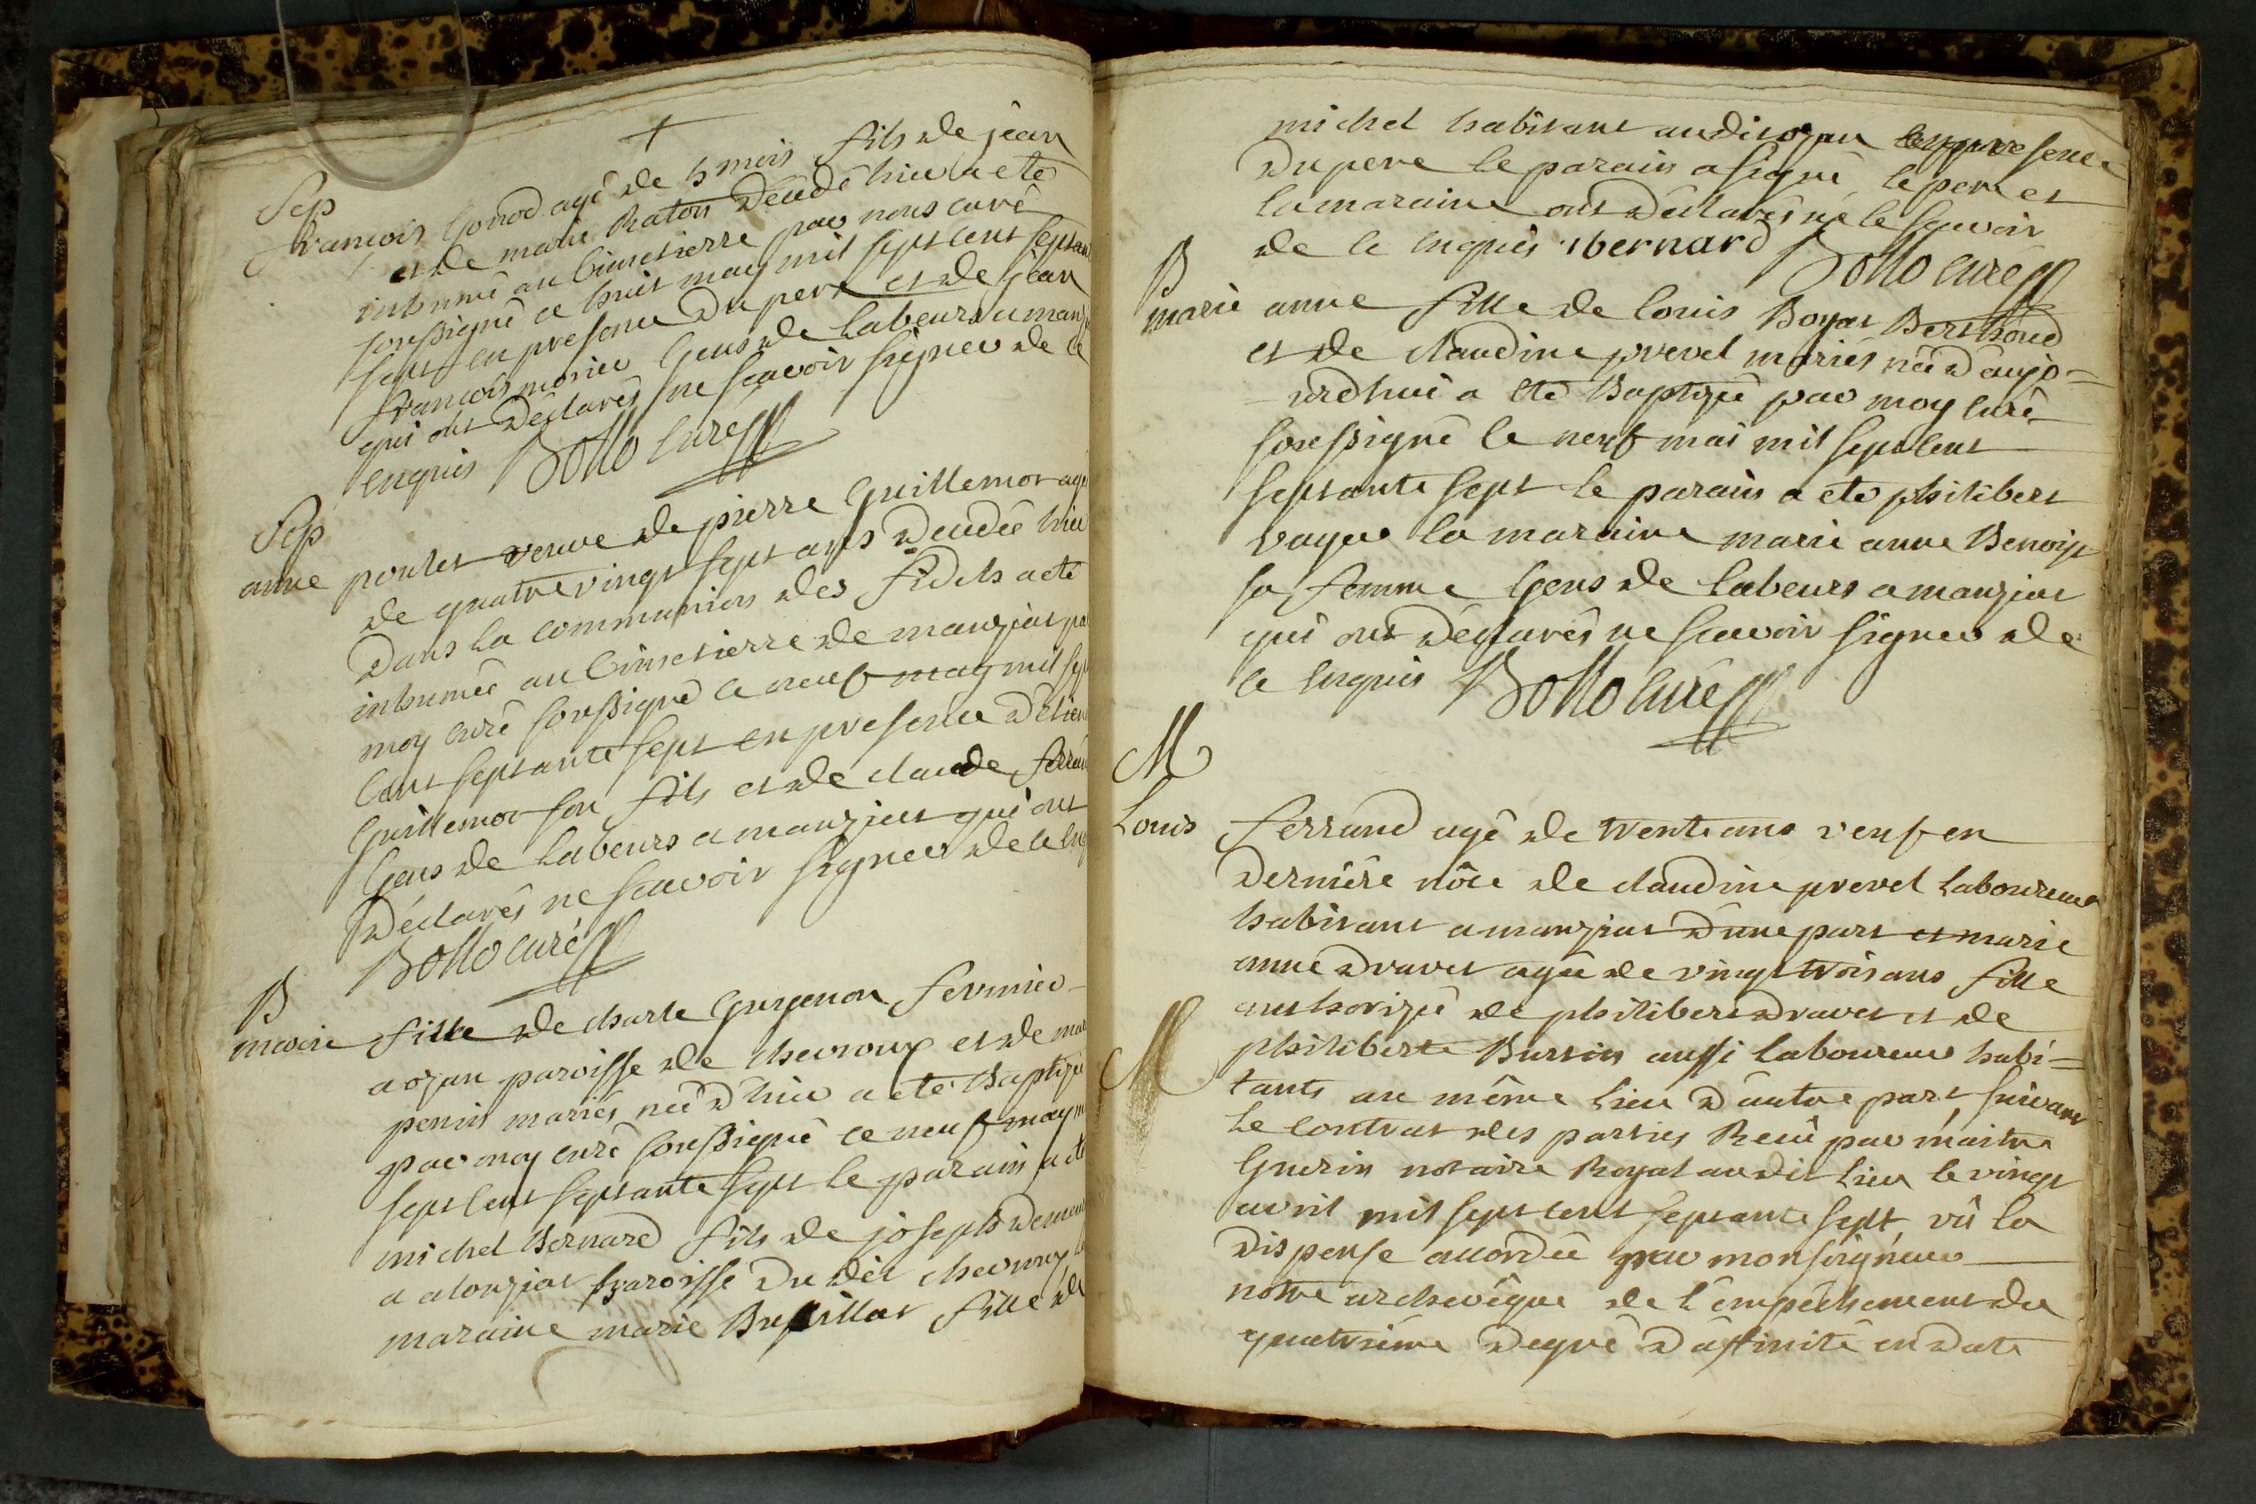 Sep
françois Gonod agé de 5 mois fils de jean
et de marie Raton décédé hier a eté
inhumé au Cimetierre par nous curé
soussigné ce huit may mil sept cent septante
sept en presence du pere et de jean
francois morier Gens de Labeurs a manz
qui ont Déclarés ne scavoir signer de ce
enquis Bollo Curé
Sep
anne poulet veuve de pierre Guillemot agé
de quatre vingt sept ans Decedée hier
Dans la communion des fidels a eté
inhumée au Cimetierre de manziat par
moy curé soussigné ce neuf may mil sept
Cent septante sept en presence D'étien
Guillemot son fils et de claude ferran
Gens de Labeurs a manziat qui ont
Déclarés ne scavoir signer de ce enq
Bollo curé
B
marie fille de charle Guyenon fermier
a ozan paroisse de chevroux et de mar
penin mariés née D'hier a eté Baptizé
par moy curé soussigné ce neuf may m
sept Cent septante sept le parain a eté
michel Bernard fils de joseph deman
a alonziat paroisse du dit chevroux la
maraine marie Brevillat fille de
michel habitant audit ozan en presence
Du pere le parain a signé le pere et
la maraine ont Déclarés ne le scavoir
de ce enquis bernard Bollo Curé
B
marie anne fille de Louis Boyat Berthoud
et de claudine prevel mariés née D'aujo=
urdhui a eté Baptizé par moy curé
soussigné le neuf mai mil sept cent
septante sept le parain a eté philibert
vayer la maraine marie anne Benoist
sa femme Gens de Labeurs a manziat
qui ont Déclarés ne scavoir signer de
ce enquis Bollo curé
M
Louis ferrand agé de trente ans veuf en
Dernière nôce de claudine prevel Laboureur
habitant a manziat D'une part et marie
anne Dravet agée de vingt trois ans fille
authorizée de philibert Dravet et de
philiberte Burtin aussi Laboureur habi=
M
tants au même Lieu D'autre part suivant
Le Contrat des parties Recû par maitre
Guerin notaire Royal audit Lieu le vingt
avril mil sept cent septante sept vû la
Dispense accordée par monseigneur
notre archevêque de L'empêchement du
quatrieme Degré D'affinité en Date